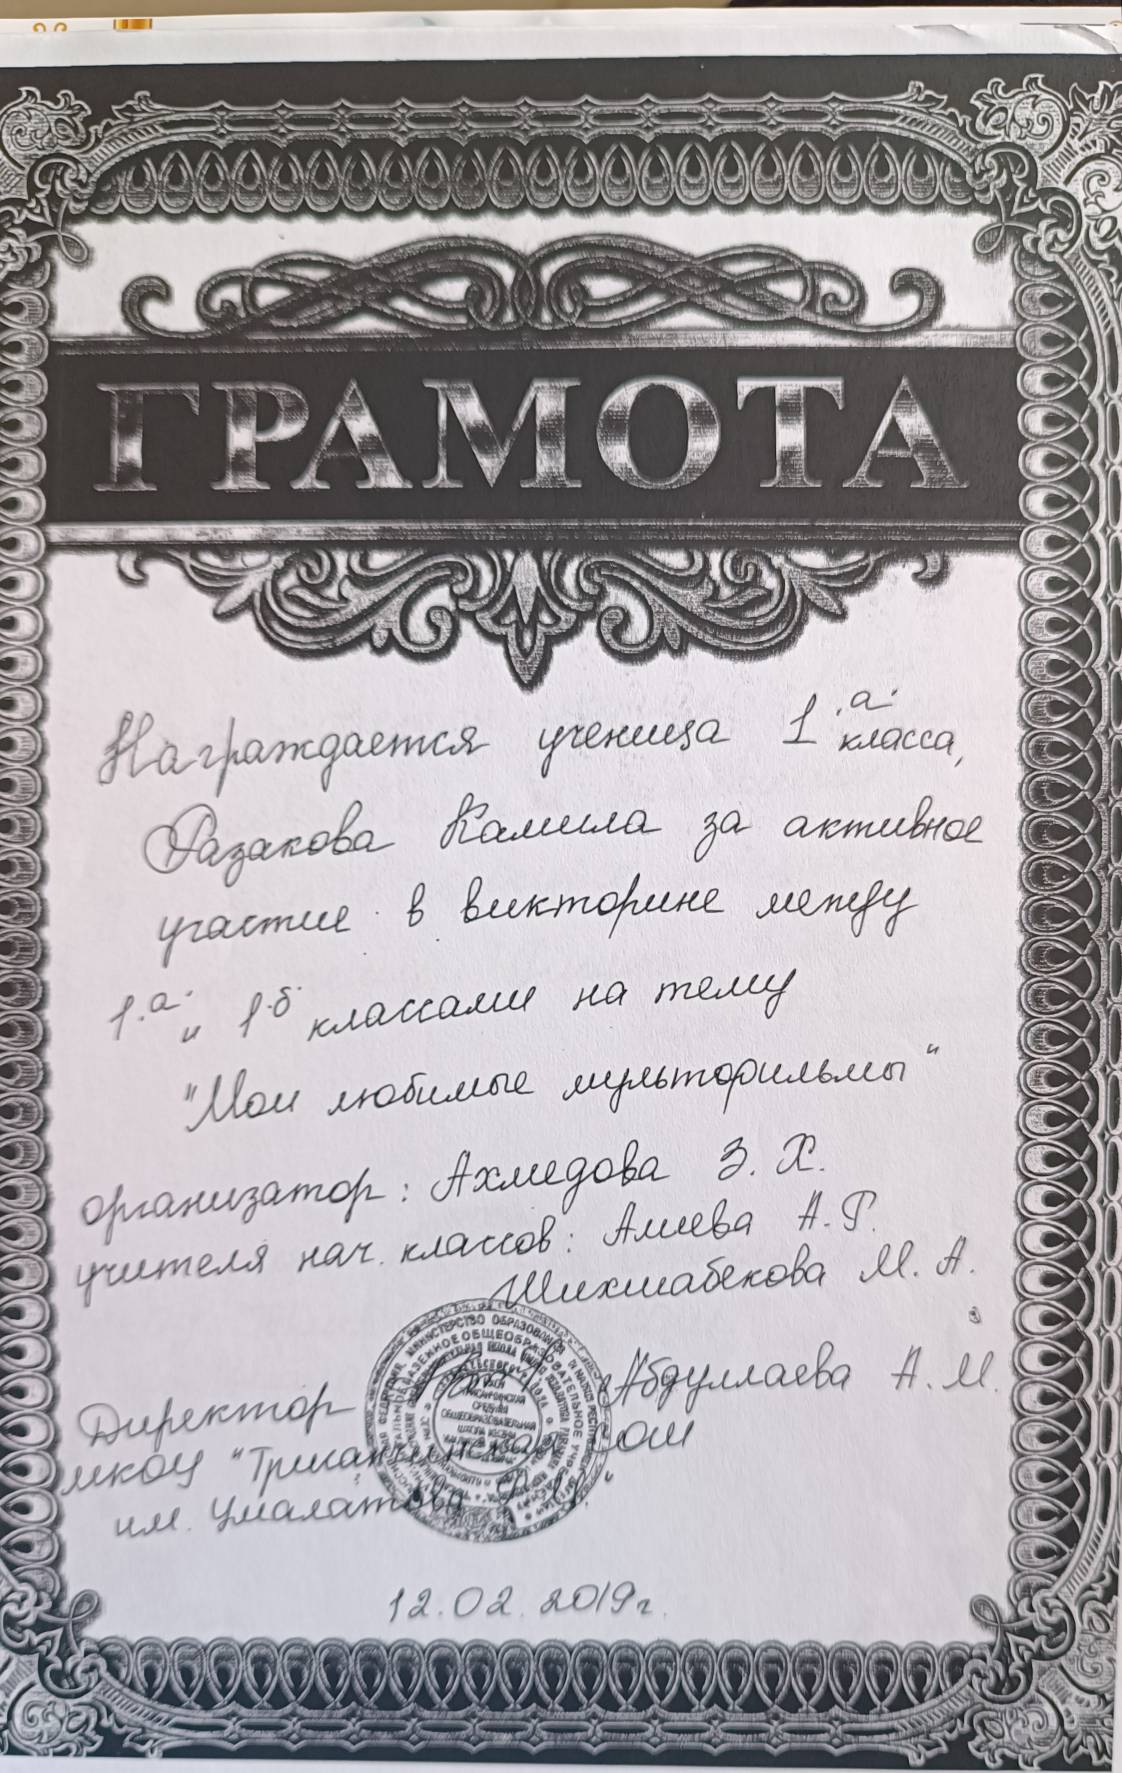 ГРАМОТА
Награждается ученица 1 "а" класса,
Разакова Камила за активное
участие в викторине между
1 "а" и 1 "б" классами на тему
"Мои любимые мультфильмы"
организатор: Ахмедова З. Х.
учителя нач. классов: Алиева А. Г.
Шихшабекова М. А.
Директор Абдуллаева А. М.
МКОУ "Трисанчинская СОШ
им. Умалатова
СРЕДНЯЯ
ОБЩЕОБРАЗОВАТЕЛЬНАЯ
12.02.2019г.